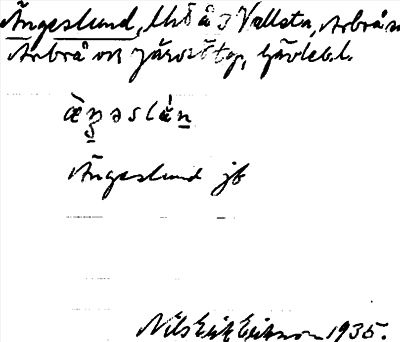 Ängeslund, lhd å 3 Vallsta, Arbrå sn
Arbrå och Järvsö tg, Gävlebl.
Ängeslund jb
Nils Erik Eriksson 1935.